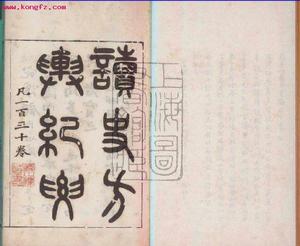 www.kongfz.com/
www.kongfz.c
讀史方
輿紀要
凡一百三十卷
上海圖